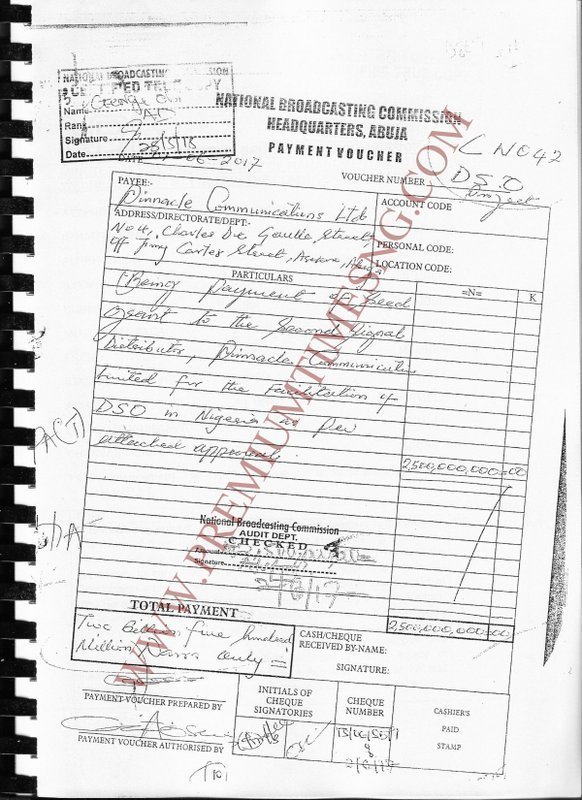 NATIONAL BROADCASTING COMMISSION
CERTIFIED TRUE COPY
Name
Rank
Signature
Date 28/5/18
NATIONAL BROADCASTING COMMISSION
HEADQUARTERS, ABUJA
PAYMENT VOUCHER
DATE -06-2017
VOUCHER NUMBER
DSO
PAYEE:-
Pinnacle Communications Ltd
ACCOUNT CODE
ADDRESS/DIRECTORATE/DEPT:-
No 4, Charles De Gaulle Street
off Jimmy Carter Street, Asokoro, Abuja
PERSONAL CODE:
LOCATION CODE:
PARTICULARS
=N=
K
Being payment of Seed
grant to the Second Signal
Distributor, Pinnacle Communication
limited for the Facilitation of
DSO in Nigeria as per
attached approval.
2,500,000,000=00
National Broadcasting Commission
AUDIT DEPT.
CHECKED
Amount
Signature
TOTAL PAYMENT
2,500,000,000=00
Two billion five hundred
Million Naira Only =
CASH/CHEQUE
RECEIVED BY-NAME:
SIGNATURE:
PAYMENT VOUCHER PREPARED BY
PAYMENT VOUCHER AUTHORISED BY
INITIALS OF
CHEQUE
SIGNATORIES
CHEQUE
NUMBER
2/6/17
CASHIER'S
PAID
STAMP
WWW.PREMIUMTIMESNG.COM